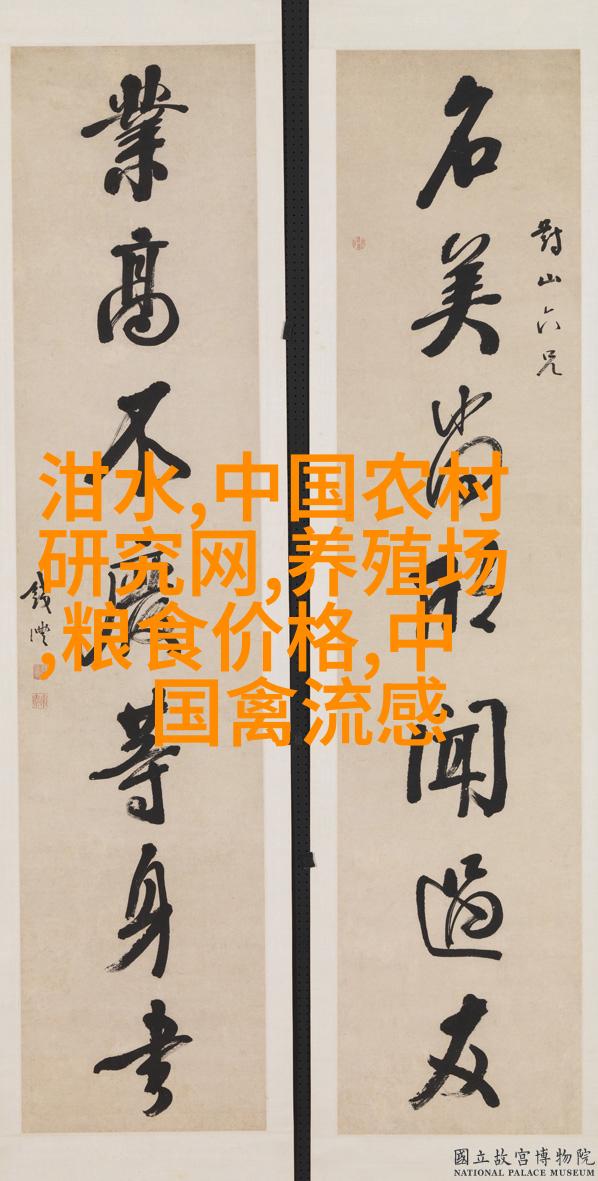 對山六兄
名美尚欣聞過友
業高不廢等身書
錢灃
泔水,中国农村
研究网,养殖场
,粮食价格,中
国禽流感
國立故宮博物院
NATIONAL PALACE MUSEUM